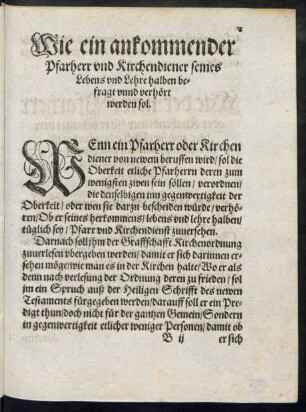 Wie ein ankommender
Pfarherr vnd Kirchendiener seines
Lebens vnd Lehre halben be-
fragt vnnd verhört
werden sol.
WEnn ein Pfarherr oder Kirchen
diener von newem beruffen wird / sol die
Oberkeit etliche Pfarherrn deren zum
wenigsten zwen sein sollen / verordnen /
die denselbigen inn gegenwertigkeit der
Oberkeit / oder wen sie darzu bescheiden würde / verhö-
ren / Ob er seines herkommens / lebens vnd lehre halben /
tüglich sey / Pfarr vnd Kirchendienst zuuersehen.
Darnach soll jhm der Graffschafft Kirchenordnung
zuuerlesen vbergeben werden / damit er sich darinnen er-
sehen möge / wie man es in der Kirchen halte / Wo er als
denn nach verlesung der Ordnung deren zu frieden / sol
jm ein Spruch auß der Heiligen Schrifft des newen
Testaments fürgegeben werden / darauff soll er ein Pre-
digt thun / doch nicht für der gantzen Gemein / Sondern
in gegenwertigkeit etlicher weniger Personen / damit ob
B ij er sich